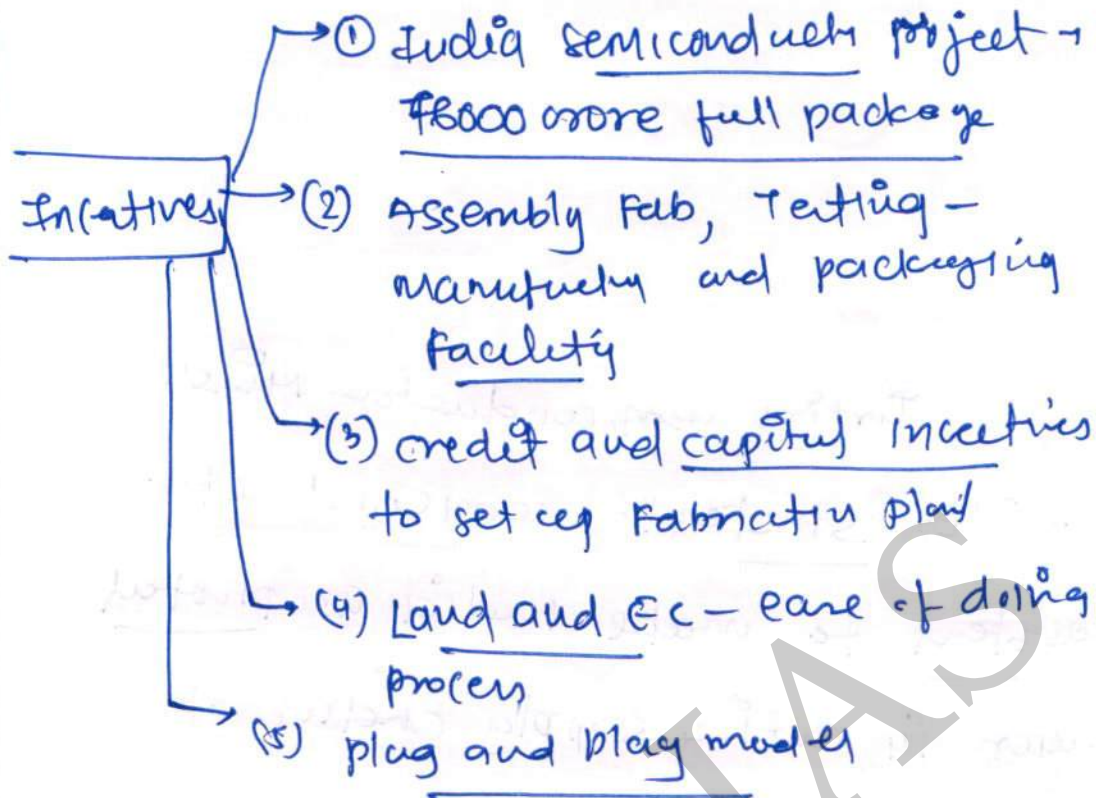 ① India semiconductor project →
76000 crore full package
Incentives
(2) Assembly Fab, Testing –
manufacturing and packaging
facility
(3) credit and capital incentives
to set up Fabrication plant
(4) Land and EC – ease of doing
process
(5) plug and play model
IAS